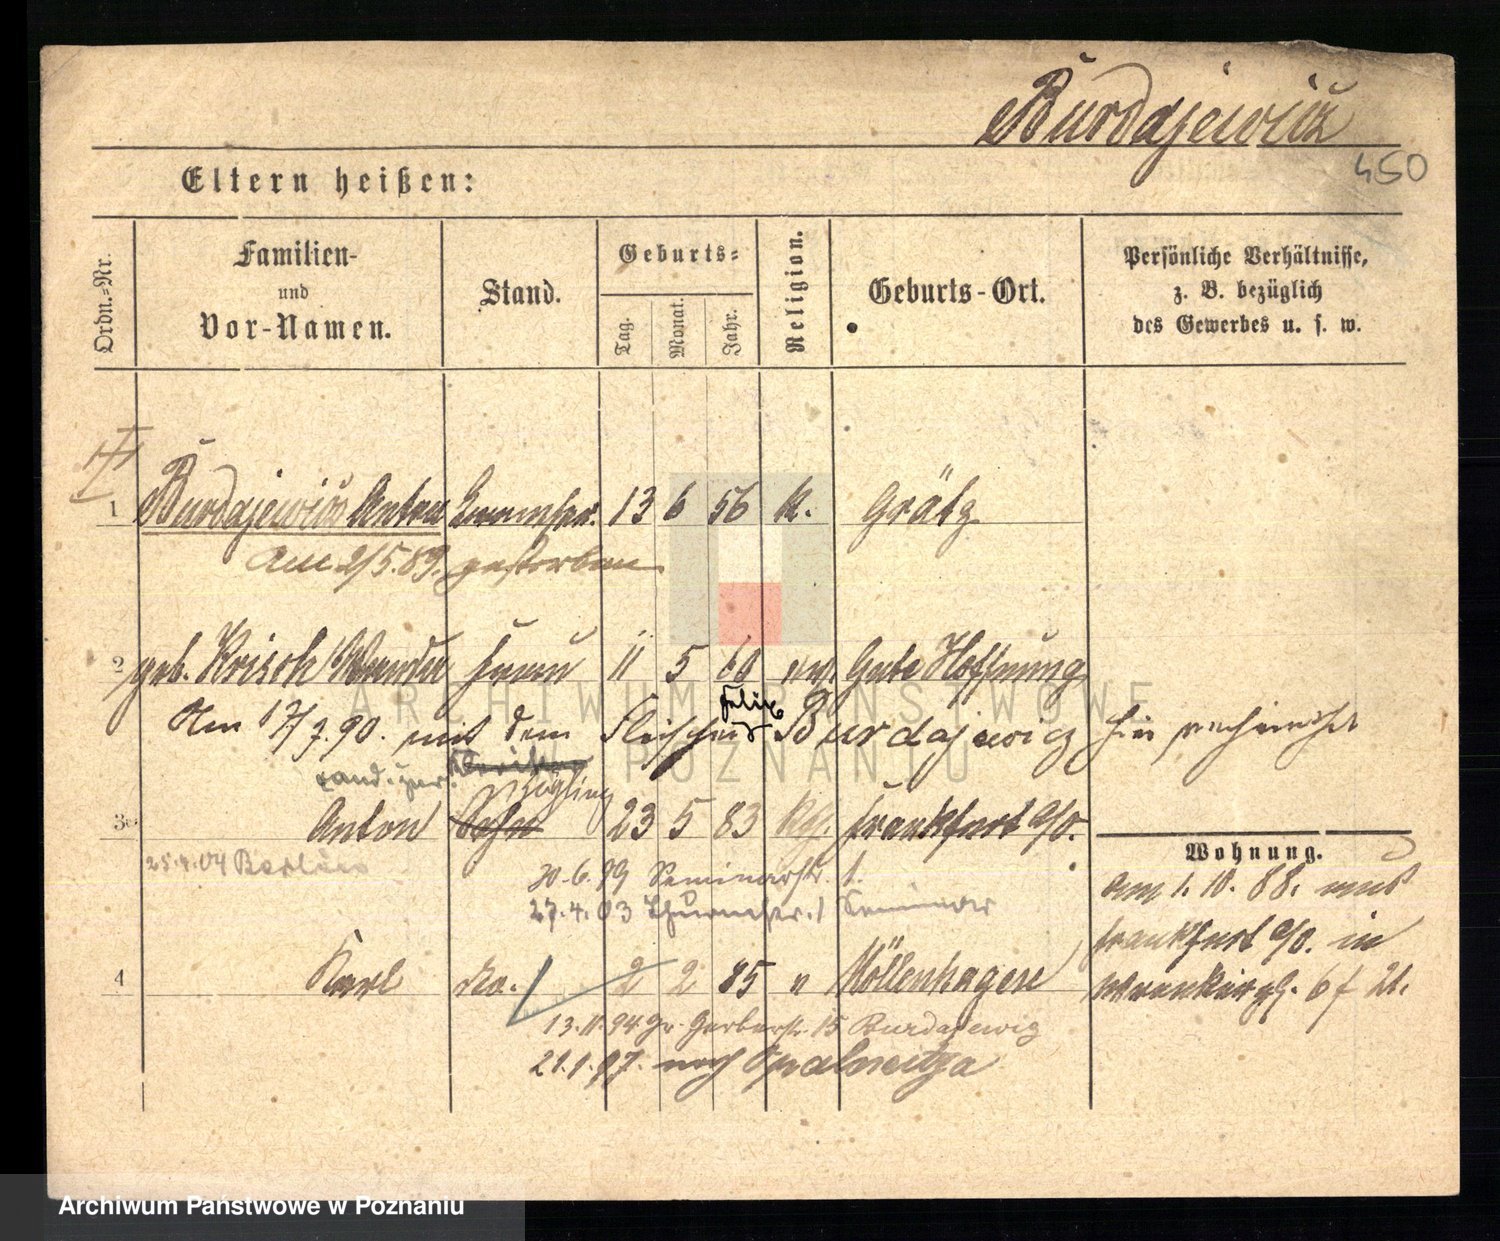 Burdajewicz
450
Eltern heißen:
Ordn.-Nr.
Familien-
und
Vor-Namen.
Stand.
Geburts-
Tag.
Monat.
Jahr.
Religion.
Geburts-Ort.
Persönliche Verhältnisse,
z. B. bezüglich
des Gewerbes u. s. w.
1 Burdajewicz Anton 13 6 56 k. Grätz
Am 2/5.89. gestorben
2 geb. Krisch Frau 11 5 60 Gute Hoffnung
Felix
Am 17/7.90. mit dem Fleischer Burdajewicz hier
Zögling
3 Anton Sohn 23 5 83 Frankfurt a/O.
25.4.04 Berlin
30.6.99 Seminarstr. 1.
27.4.03 1 Seminar
Wohnung.
am 1.10.88. aus
Frankfurt a/O. in
4 Karl do. 2 2 85 " Möllenhagen
13.11.94 Gr. Gerberstr. 15 Burdajewicz
21.1.97. nach
ARCHIWUM PAŃSTWOWE
W POZNANIU
Archiwum Państwowe w Poznaniu